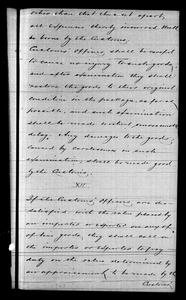 other than that the act apart,
and expenses thereby incurred shall
be borne by the Customs.
Customs officers, shall be careful
to cause no injury to such goods,
and after examination they shall
restore the goods to their original
condition in the package, as far as
possible, and such examination
shall be made without unreasonable
delay. Any damage to the goods
caused by carelessness in such
examination, shall be made good
by the Customs.
XII.
If the Customs' officers, are dis-
satisfied with the value placed by
an importer or exporter on any of
of his goods, they shall call on
the importer or exporter to pay
duty on the value determined by
an appraisement, to be made by the
Customs'